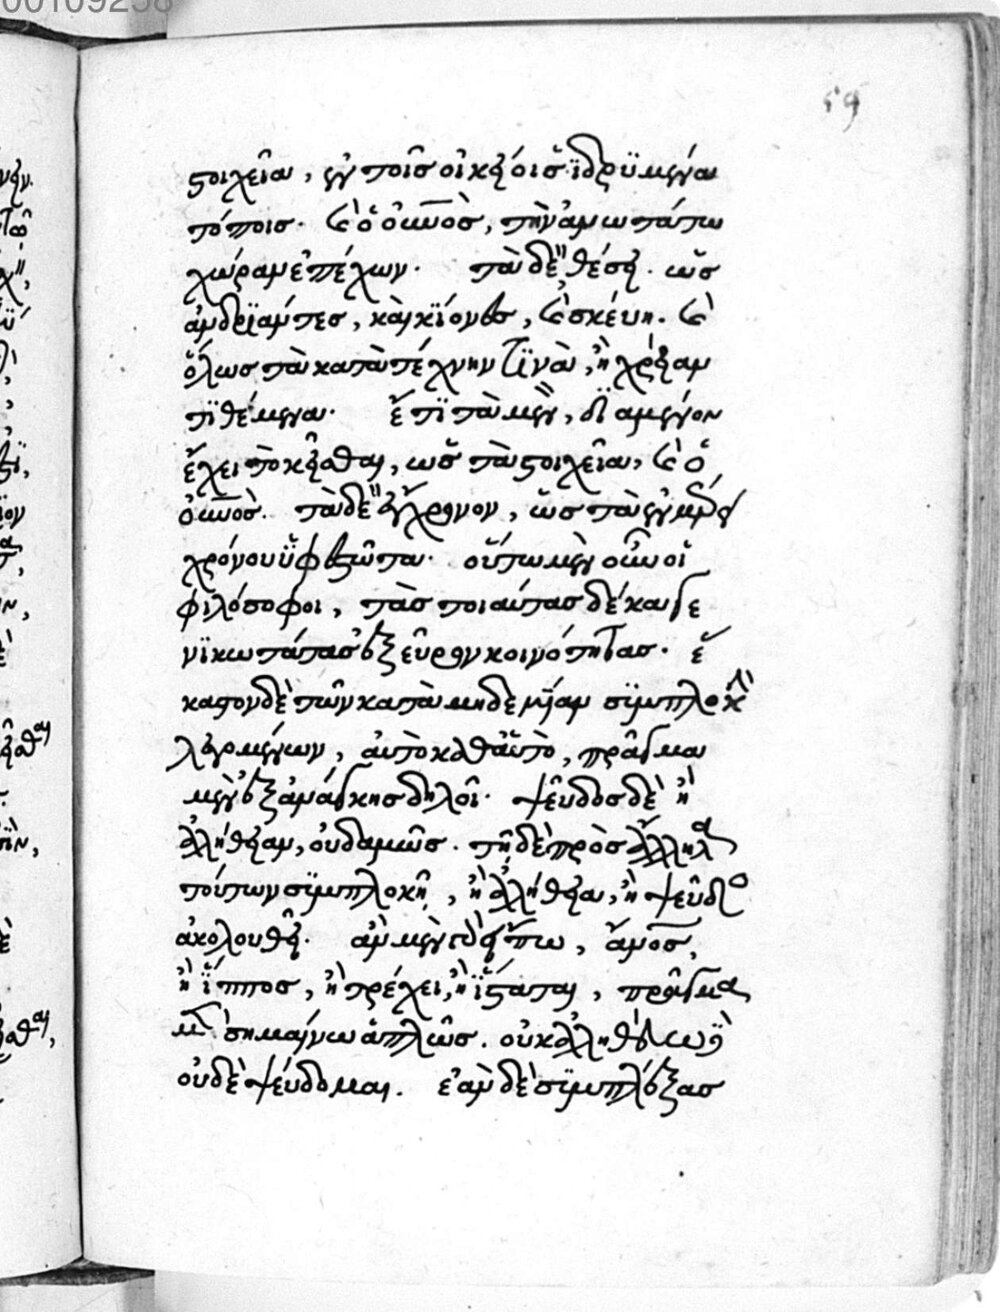 00109258
59
στοιχεῖα, ἐν τοῖς οἰκείοις ἱδρυμένα
τόποις. καὶ ὁ οὐνὸς, τὴν ἀνωτάτω
χώραν ἐπέχων. τὰ δὲ, θέσει. ὡς
ἀνδριάντες, καὶ κίονες, καὶ σκεύη. καὶ
ὅλως τὰ κατὰ τέχνην τινὰ, ἢ χρείαν
τιθέμενα. ἔτι τὰ μὲν, διαμένον
ἔχει τὸ κεῖσθαι, ὡς τὰ στοιχεῖα, καὶ ὁ
οὐνὸς. τὰ δὲ ἔγχρονον, ὡς τὰ ἐν μέρει
χρόνου ὑφεστῶτα. οὕτω μὲν οὖν οἱ
φιλόσοφοι, τὰς τοιαύτας δέκα γε
νικωτάτας ἐξεῦρον κοινότητας. ἕ
καστον δὲ τῶν κατὰ μηδεμίαν συμπλοκὴν
λεγομένων, αὐτὸ καθ' αὑτὸ, πρᾶγμα
μὲν ἐξ ἀνάγκης δηλοῖ. ψεῦδος δὲ ἢ
ἀλήθειαν, οὐδαμῶς. τῇ δὲ πρὸς ἄλληλα
τούτων συμπλοκῇ, ἢ ἀλήθεια, ἢ ψεῦδο
ἀκολουθεῖ. ἂν μὲν γὰρ εἴπω, ἄνος,
ἢ ἵππος, ἢ τρέχει, ἢ ἵσταται, πρᾶγμα
μὲν σημαίνω ἁπλῶς. οὐκ ἀληθεύω δὲ
οὐδὲ ψεύδομαι. ἐὰν δὲ συμπλέξας